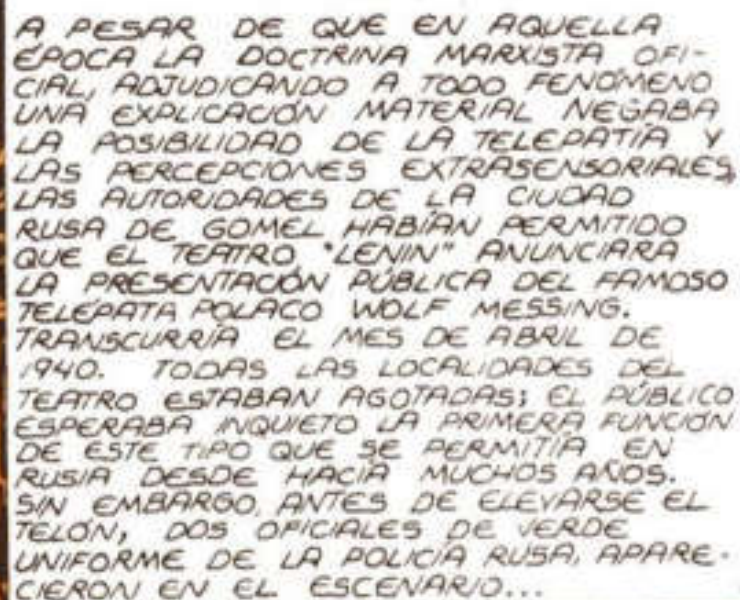 A PESAR DE QUE EN AQUELLA
ÉPOCA LA DOCTRINA MARXISTA OFI-
CIAL, ADJUDICANDO A TODO FENÓMENO
UNA EXPLICACIÓN MATERIAL NEGABA
LA POSIBILIDAD DE LA TELEPATÍA Y
LAS PERCEPCIONES EXTRASENSORIALES,
LAS AUTORIDADES DE LA CIUDAD
RUSA DE GOMEL HABÍAN PERMITIDO
QUE EL TEATRO "LENIN" ANUNCIARA
LA PRESENTACIÓN PÚBLICA DEL FAMOSO
TELÉPATA POLACO WOLF MESSING.
TRANSCURRÍA EL MES DE ABRIL DE
1940. TODAS LAS LOCALIDADES DEL
TEATRO ESTABAN AGOTADAS; EL PÚBLICO
ESPERABA INQUIETO LA PRIMERA FUNCIÓN
DE ESTE TIPO QUE SE PERMITÍA EN
RUSIA DESDE HACÍA MUCHOS AÑOS.
SIN EMBARGO, ANTES DE ELEVARSE EL
TELÓN, DOS OFICIALES DE VERDE
UNIFORME DE LA POLICÍA RUSA, APARE-
CIERON EN EL ESCENARIO...